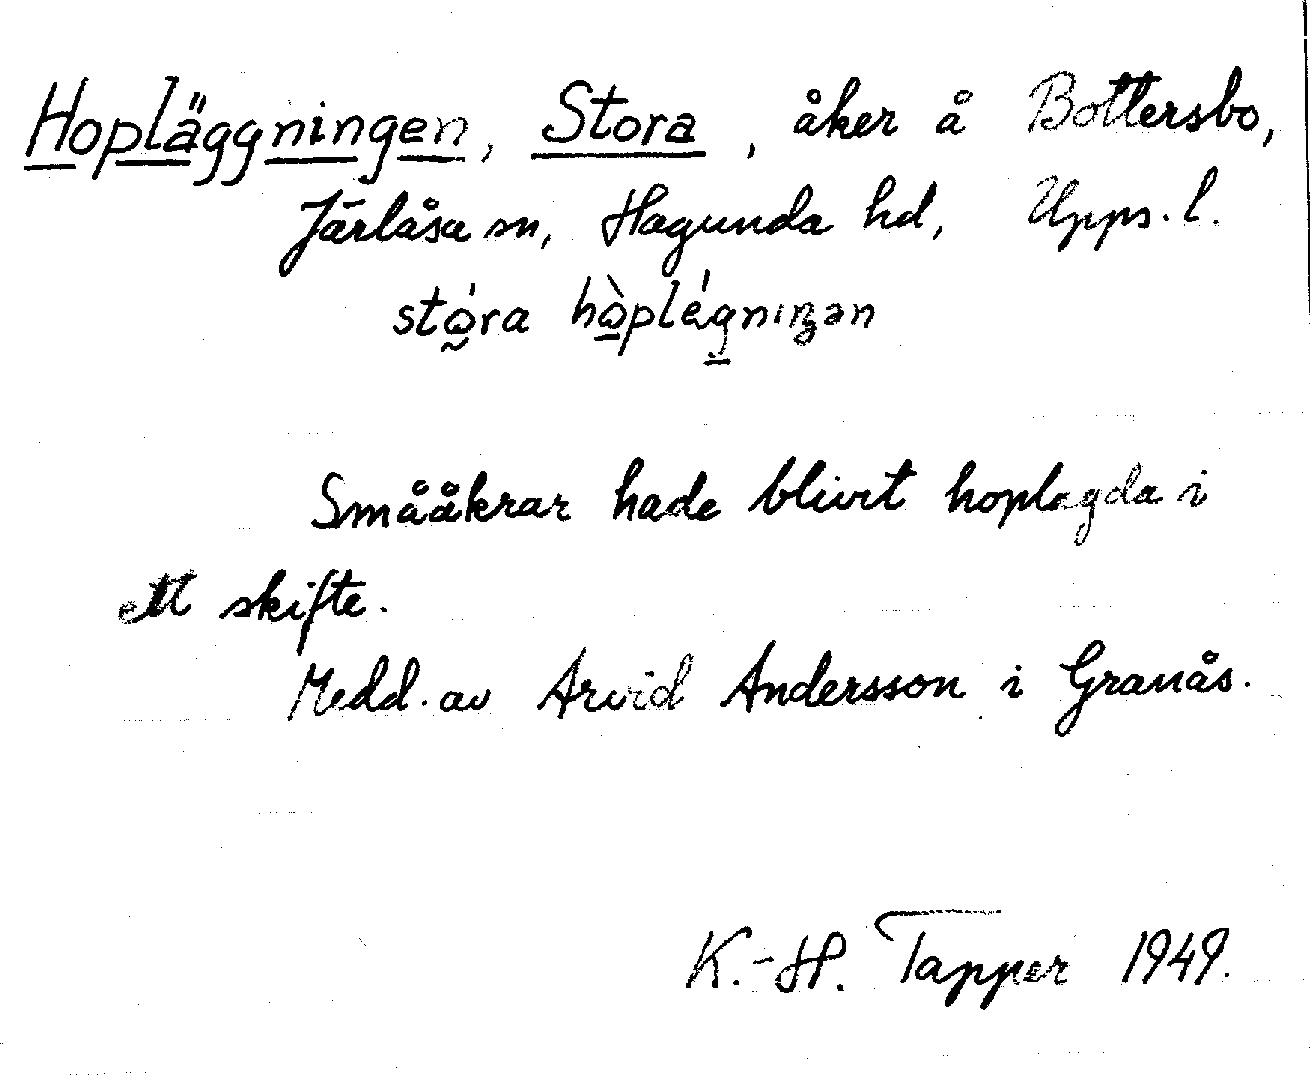 Hopläggningen, Stora, åker å Bottersbo,
Järlåsa sn, Hagunda hd, Upps. l.
stǫ́ra hòplégnıŋən
Smååkrar hade blivit hoplagda i
ett skifte.
Medd. av Arvid Andersson i Granås.
K.-H. Tapper 1949.